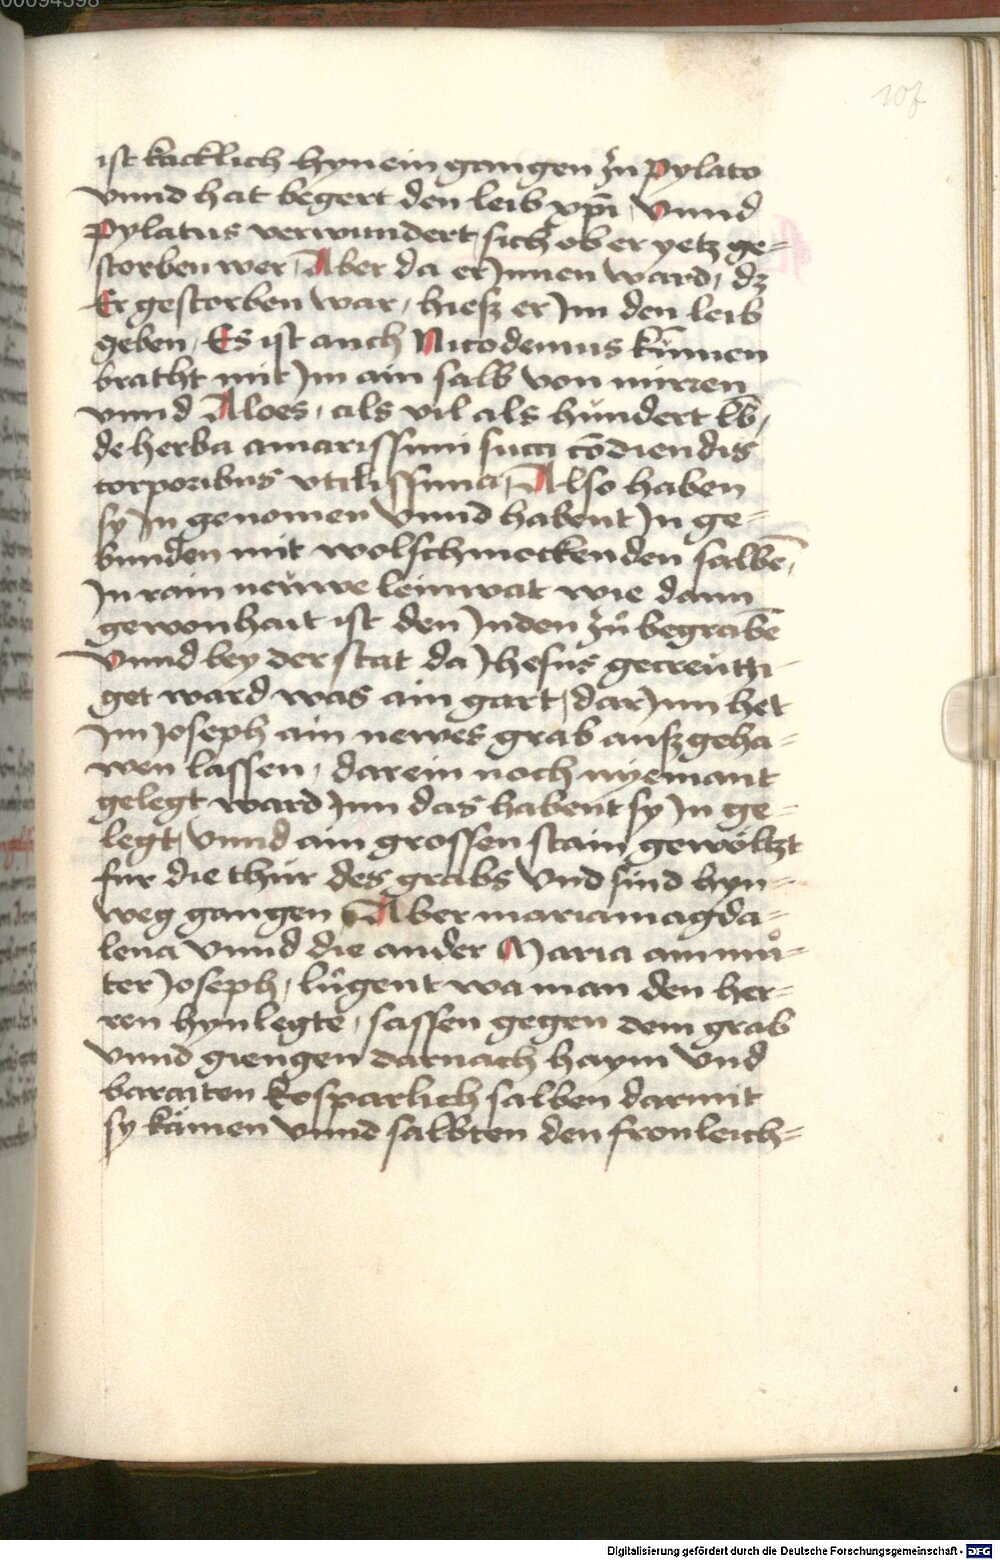 107
ist kacklich hyn ein gangen zů pylato
vnnd hat begert den leib xp̄i, Vnnd
Pylatus verwundert sich ob er yetz ge=
storben wer, Aber da er Jnnen ward, dz
Er gestorben war, hiesz er Jm den leib
geben, Es ist auch Nicodemus kūmen
bracht mit Jm ain salb von mirren
vnnd Aloes, als vil als hundert lb,
de herba amarissimi succi cōdiendis
corporibus vtilissima, Also haben
sy Jn genomen Vnnd habent Jn ge=
bunden mit wolschmeckenden salbē,
Jn rain neuwe leinwat wie dann
gewonhait ist den Juden zů begrabē
Vnnd bey der stat da Jhesus gecreutzi-
get ward was ain gart, dar Jnn het
Jm Joseph ain newes grab ausz geha=
wen lassen, darein noch nyemant
gelegt ward Jnn das habent sy Jn ge=
legt, Vnnd ain grossen stain gewöltzt
für die thür des grabs Vnd sind hyn=
weg gangen Aber maria magda=
lena Vnnd die ander Maria ain mů=
ter Joseph, lůgent wa man den her=
ren hyn legte, sassen gegen dem grab
Vnnd giengen darnach haym Vnd
baraiten kosparlich salben darmit
sy kämen Vnnd salbten den fronleich=
Digitalisierung gefördert durch die Deutsche Forschungsgemeinschaft - DFG